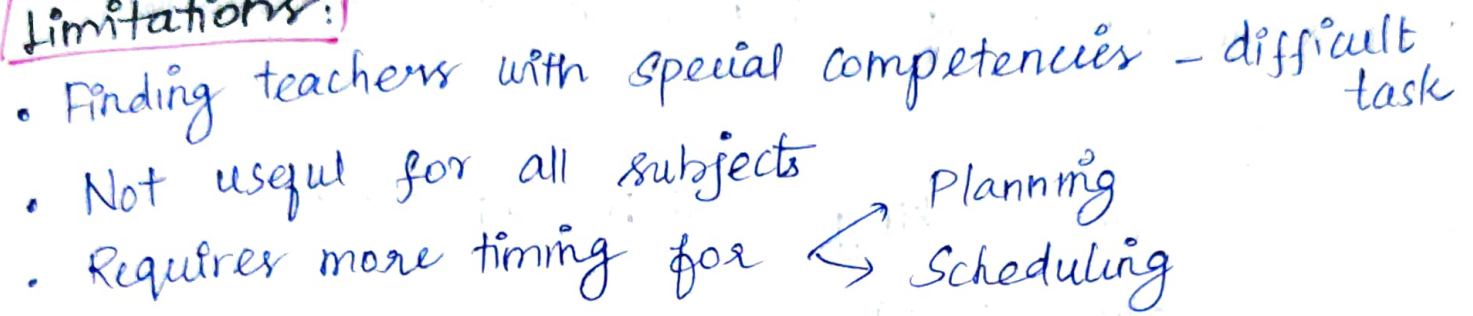 Limitations:
• Finding teachers with special competencies – difficult task
• Not useful for all subjects
• Requires more timing for Planning
Scheduling